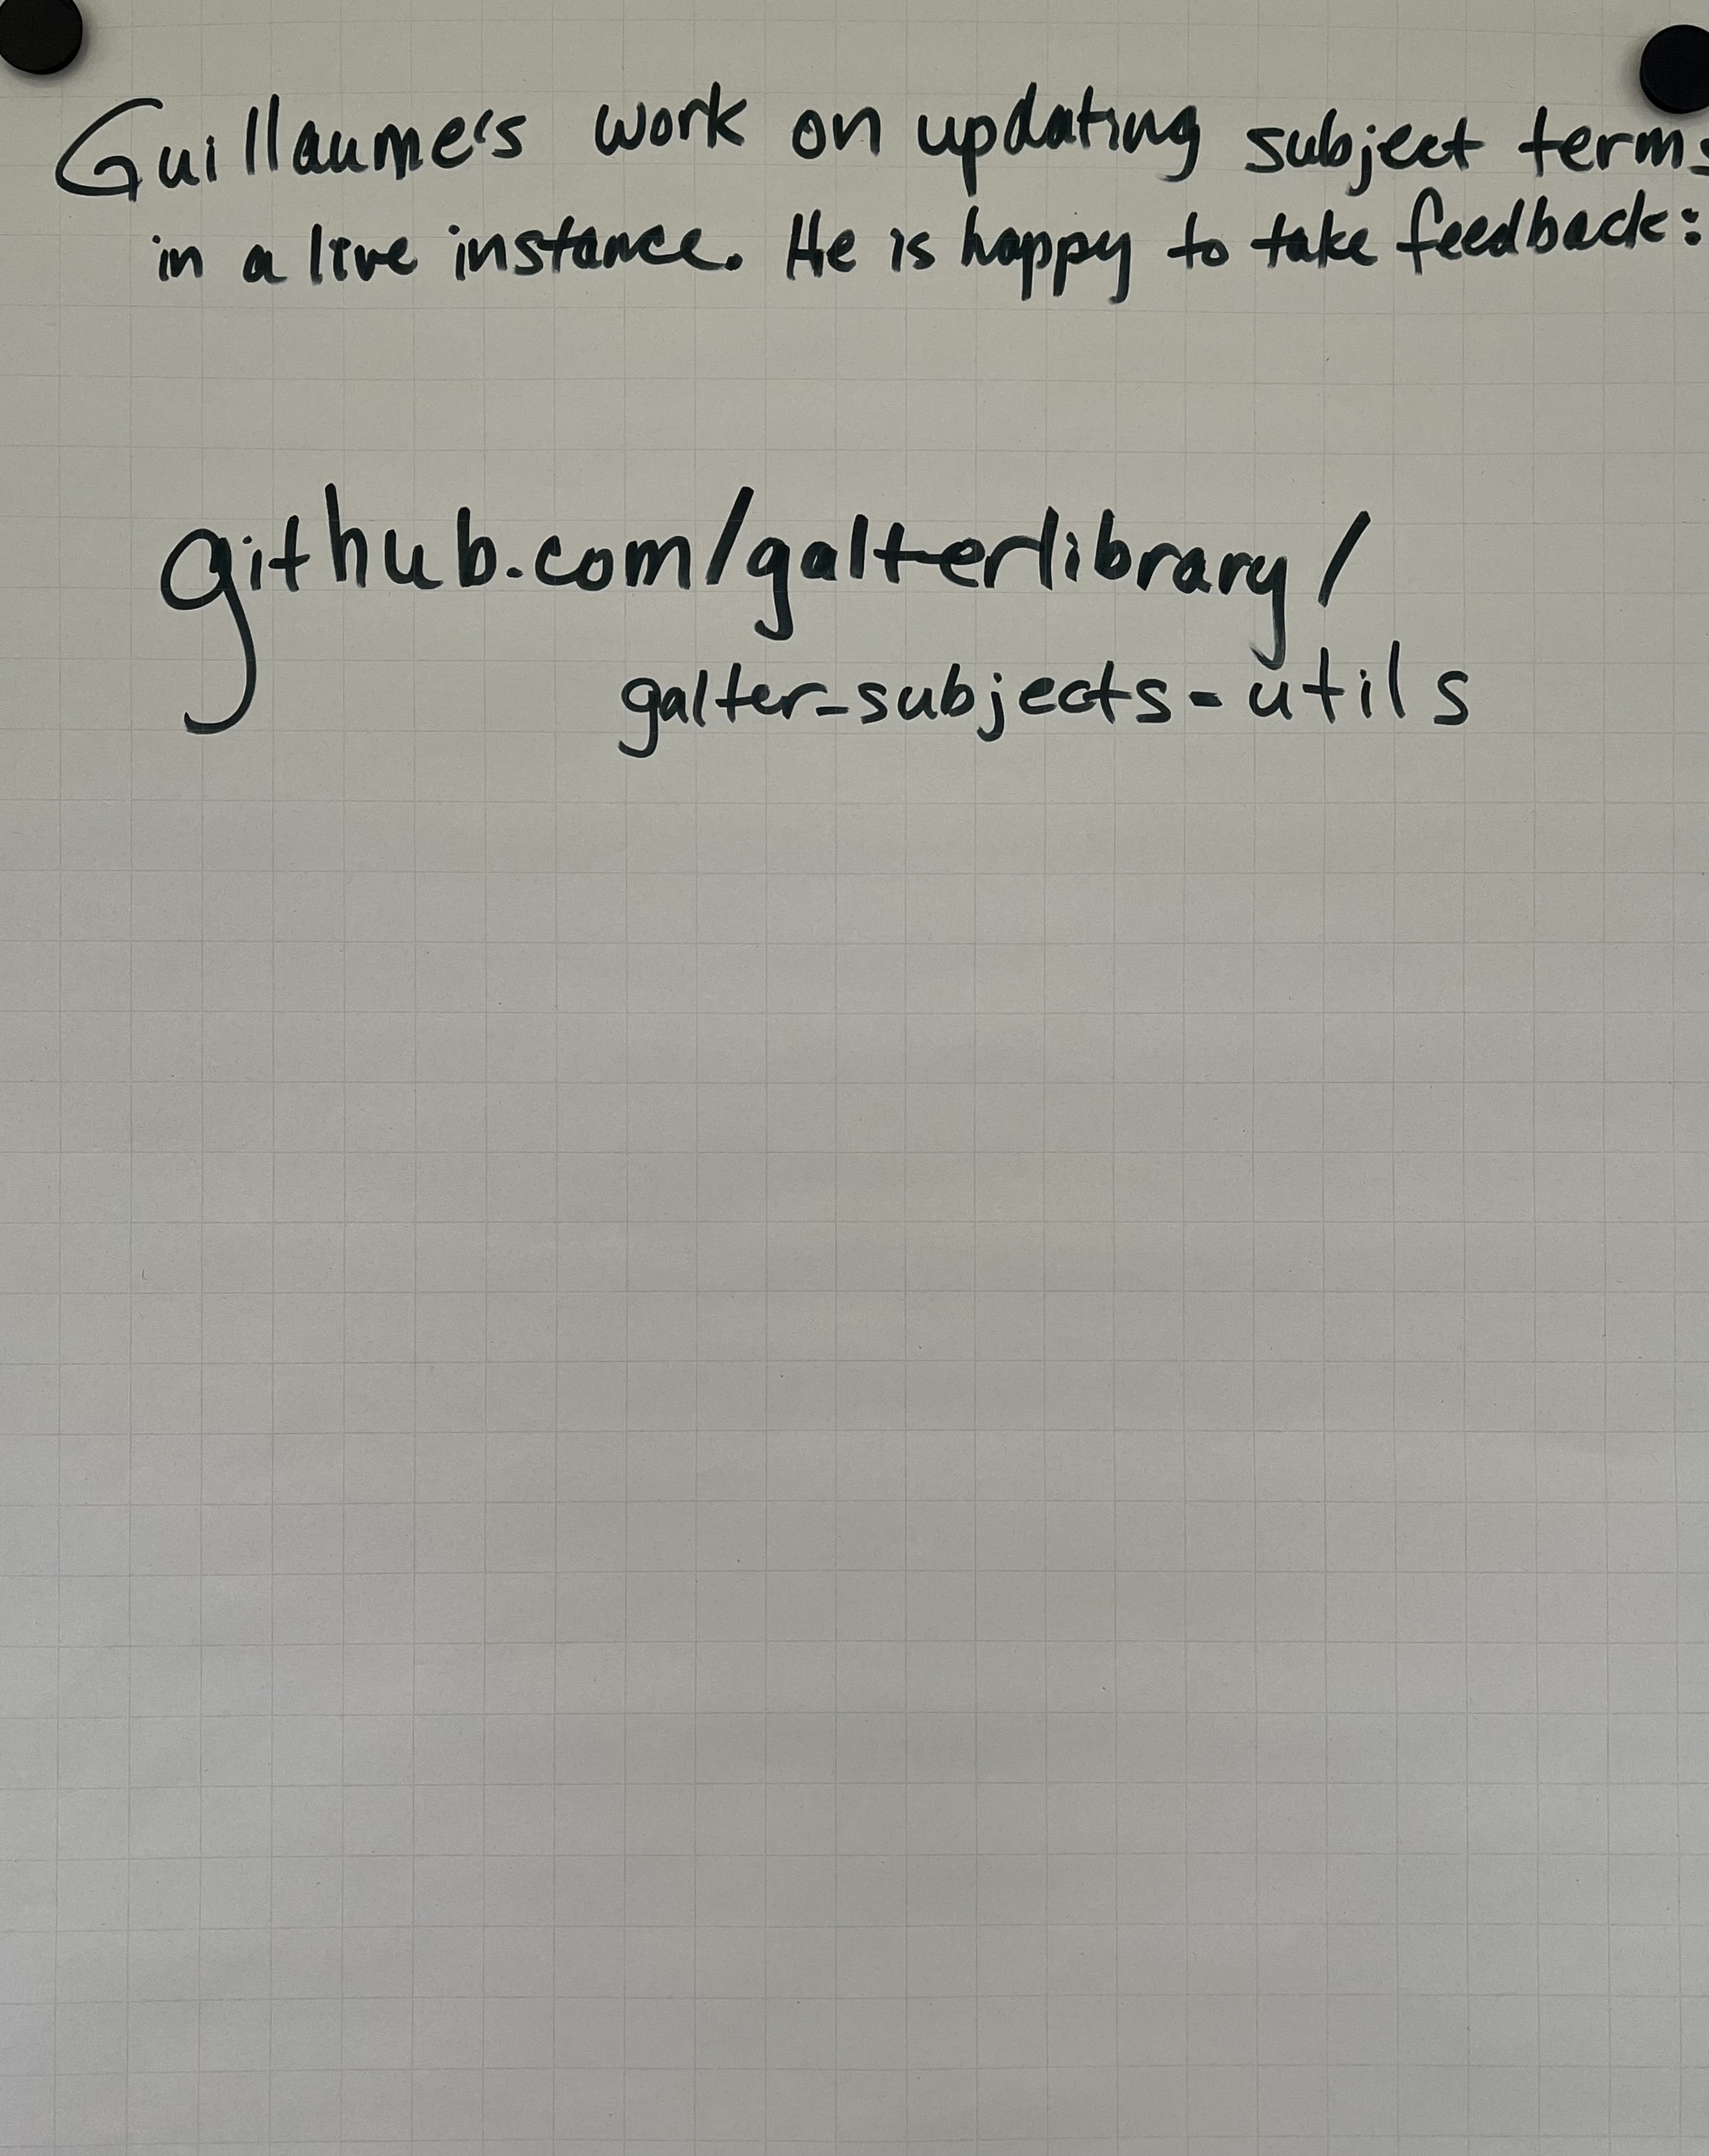 Guillaume's work on updating subject terms
in a live instance. He is happy to take feedback:
github.com/galterlibrary/
galter-subjects-utils